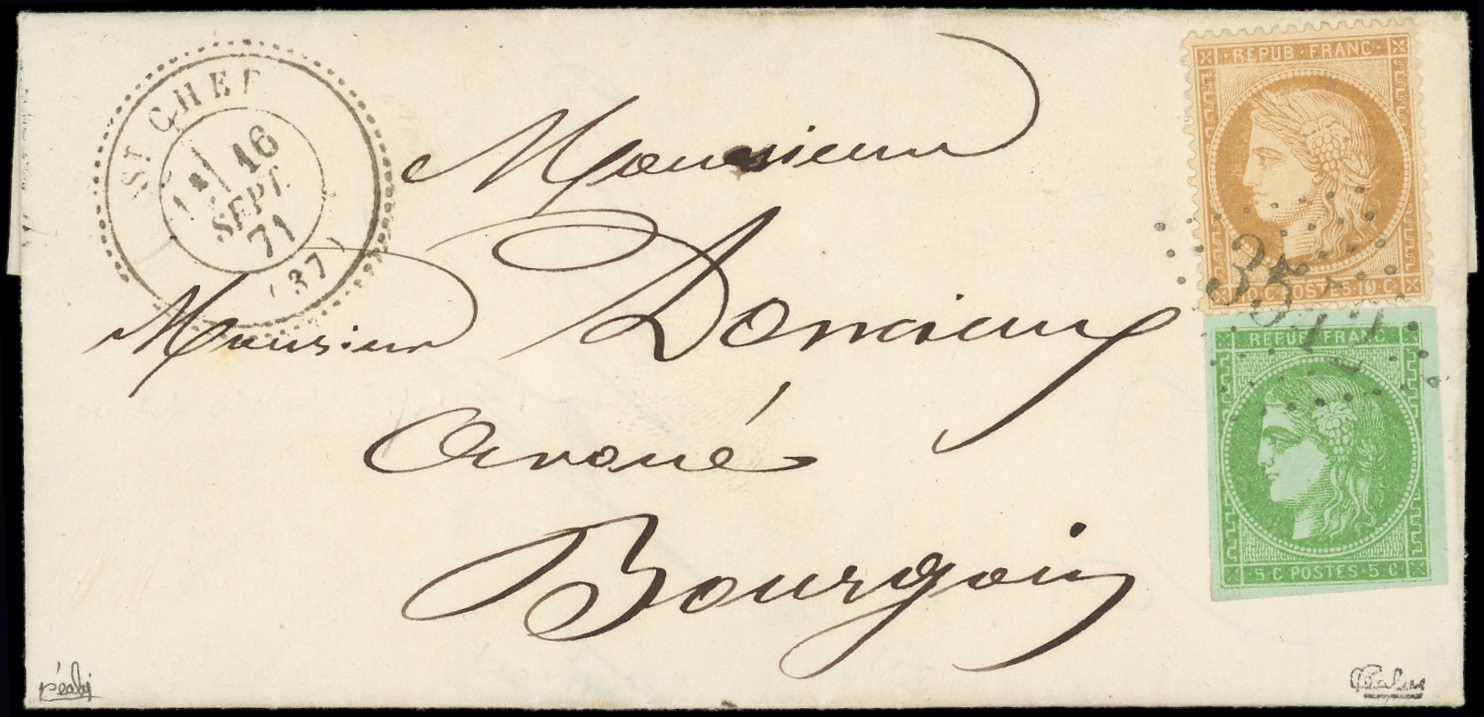 ST CHEF
16
SEPT.
71
(37)
REPUB·FRANC·
10 C·POSTES·10 C
REPUB·FRANC
5 C POSTES·5 C
Monsieur
Monsieur Doncieux
avoué
Bourgoin